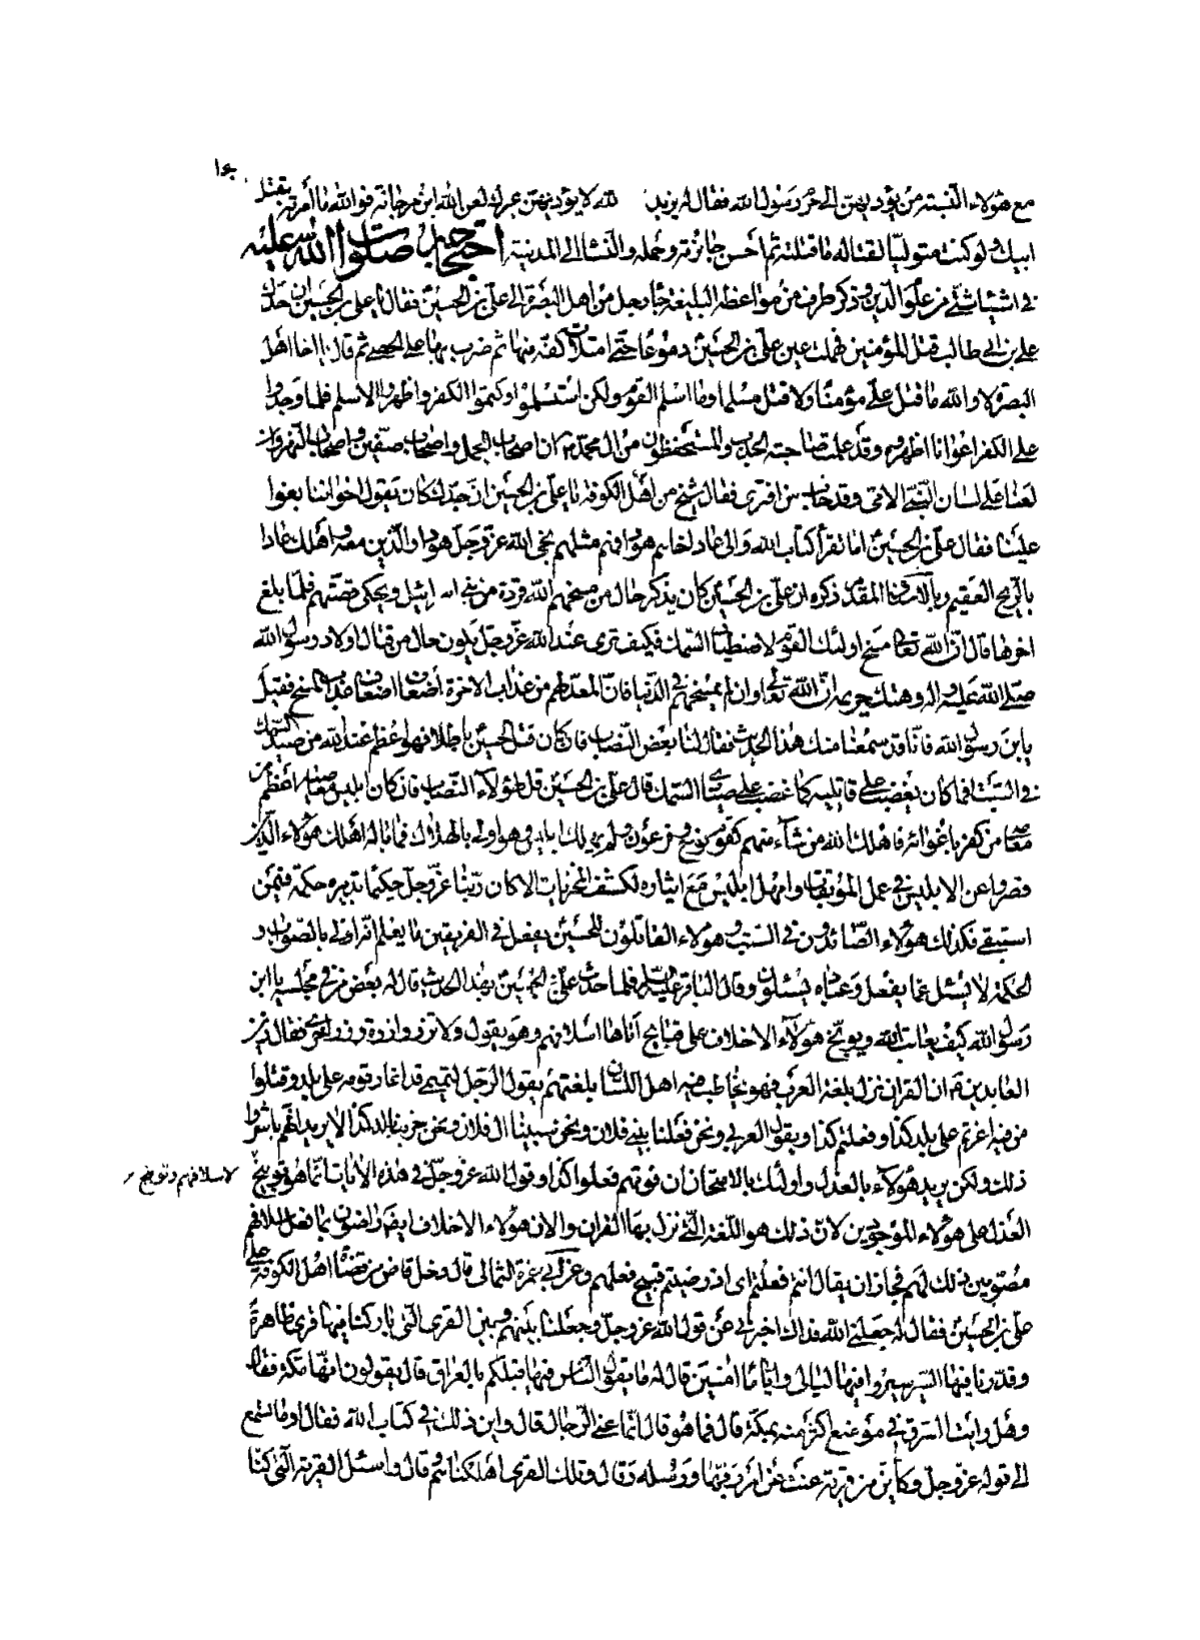 مع هؤلاء النسبة من يؤديهن الى حرم رسول الله فقال له يزيد لله لا يؤديهن غيرك لعن الله ابن مرجانة فو الله ما أمرته بقتل
ابيك ولو كنت متوليا لقتاله ما قتلته ثم احسن جائزته وحمله والنساء الى المدينة احتجاجه صلوات الله عليه
في اشياء شتى من علوم الدين وذكر طرف من مواعظه البليغة جاء رجل من اهل البصرة الى على بن الحسين فقال يا على بن الحسين ان جدك
على بن ابي طالب قتل المؤمنين فهملت عين على بن الحسين دموعا حتى امتلات كفه منها ثم ضرب بها على الحصى ثم قال يا اخا اهل
البصرة لا والله ما قتل على مؤمنا ولا قتل مسلما وما اسلم القوم ولكن استسلموا وكتموا الكفر واظهروا الاسلم فلما وجدوا
على الكفر اعوانا اظهروه وقد علمت صاحبة الجدب والمستحفظون من ال محمد ان اصحاب الجمل واصحاب صفين واصحاب النهروان
لعنوا على لسان النبي الامي وقد خاب من افترى فقال شيخ من اهل الكوفة يا على بن الحسين ان جدك كان يقول اخواننا بغوا
علينا فقال على بن الحسين اما تقرأ كتاب الله والى عاد اخاهم هودا فهم مثلهم نجى الله عز وجل هودا والذين معه واهلك عادا
بالريح العقيم وبالاسناد المقدم ذكره ان على بن الحسين كان يذكر حال من مسخهم الله قردة من بني اسرائيل ويحكى قصتهم فلما بلغ
اخرها قال ان الله تعالى مسخ اولئك القوم لاصطياد السمك فكيف ترى عند الله عز وجل يكون حال من قتل اولاد رسول الله
صلى الله عليه واله وهتك حريمه ان الله تعالى وان لم يمسخهم في الدنيا فان المعد لهم من عذاب الاخرة اضعاف اضعاف عذاب المسخ فقيل
يا بن رسول الله فانا قد سمعنا منك هذا الحديث فقال لنا بعض النصاب فان كان قتل الحسين باطلا فهو اعظم عند الله من صيد السمك
في السبت افما كان يغضب على قاتليه كما غضب على صيادى السمك قال على بن الحسين قل لهؤلاء النصاب فان كان ابليس معاصيه اعظم من
معاصى من كفر باغوائه فاهلك الله من شاء منهم كقوم نوح وفرعون ولم يهلك ابليس وهو اولى بالهلاك فما باله اهلك هؤلاء الذين
قصروا عن الابليس في عمل الموبقات وامهل ابليس مع ايثاره لكشف المخزيات الا كان ربنا عز وجل حكيما تدبيره حكمة فيمن
استبقى فكذلك هؤلاء الصائدون في السبت وهؤلاء القاتلون للحسين يفعل في الفريقين ما يعلم انه اولى بالصواب و
الحكمة لا يسئل عما يفعل وعباده يسئلون وقال الباقر عليه السلام فلما حدث على بن الحسين بهذا الحديث قال له بعض من في مجلسه يا ابن
رسول الله كيف يعاتب الله ويوبخ هؤلاء الاخلاف على قبايح اتاها اسلافهم وهو يقول ولا تزر وازرة وزر اخرى فقال زين
العابدين ان القران نزل بلغة العرب فهو يخاطب فيه اهل اللسان بلغتهم يقول الرجل لتميمى قد اغار قومه على بلد وقتلوا
من فيه اغرتم على بلد كذا وفعلتم كذا ويقول العربي ونحن فعلنا ببني فلان ونحن سبينا ال فلان ونحن خربنا بلد كذا لا يريد انهم باشروا
ذلك ولكن يريد هؤلاء بالعذل واولئك بالامتحان ان قومهم فعلوا كذا وقول الله عز وجل في هذه الايات انما هو توبيخ
لاسلافهم وتوبيخ
العذل على هؤلاء الموجودين لان ذلك هو اللغة التي نزل بها القران والان هؤلاء الاخلاف ايضا راضون بما فعل اسلافهم
مصوبين ذلك لهم فجاز ان يقال انتم فعلتم اى اذ رضيتم قبيح فعلهم وعن ابي حمزة الثمالي قال دخل قاض من قضاة اهل الكوفة على
على بن الحسين فقال له جعلني الله فداك اخبرني عن قول الله عز وجل وجعلنا بينهم وبين القرى التي باركنا فيها قرى ظاهرة
وقدرنا فيها السير سيروا فيها ليالى واياما امنين قال له ما يقول الناس فيها قبلكم بالعراق قال يقولون انها مكة فقال
وهل رايت السرق في موضع اكثر منه بمكة قال فما هو قال انما عنى الرجال قال واين ذلك في كتاب الله فقال اوما تسمع
الى قوله عز وجل وكاين من قرية عتت عن امر ربها ورسله وقال وتلك القرى اهلكناهم وقال واسئل القرية التي كنا